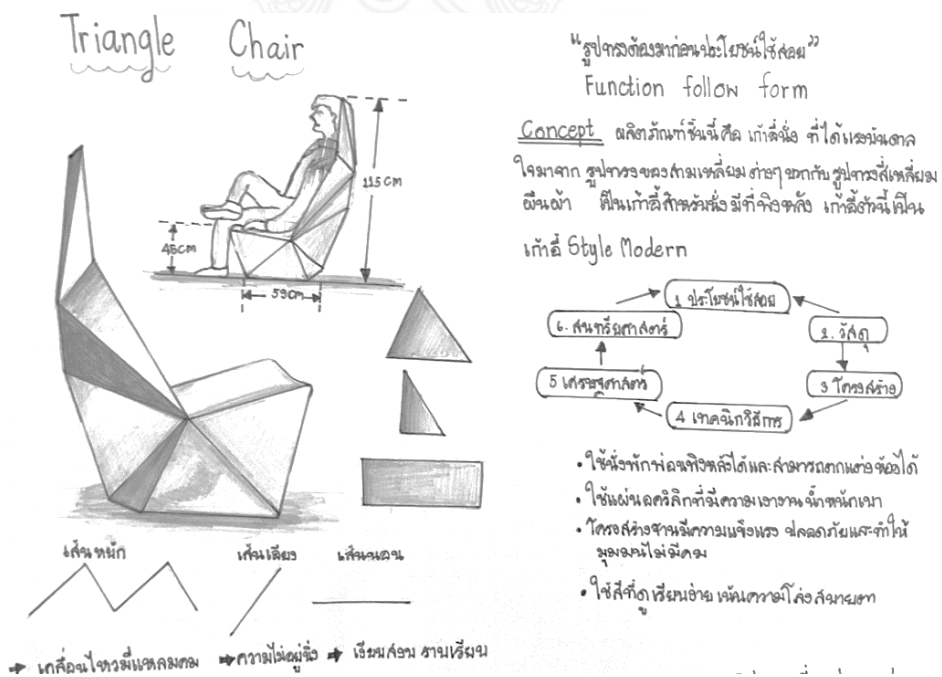 Triangle Chair
115 CM
45CM
59CM
เส้นหยัก
เส้นเฉียง
เส้นนอน
เคลื่อนไหวมีแหลมคม
ความไม่อยู่นิ่ง
เงียบสงบ ราบเรียบ
"รูปทรงต้องมาก่อนประโยชน์ใช้สอย"
Function follow form
Concept ผลิตภัณฑ์ชิ้นนี้คือ เก้าอี้นั่ง ที่ได้แรงบันดาล
ใจมาจาก รูปทรงของสามเหลี่ยมต่างๆ บวกกับรูปทรงสี่เหลี่ยม
ผืนผ้า เป็นเก้าอี้สำหรับนั่งมีที่พิงหลัง เก้าอี้ตัวนี้เป็น
เก้าอี้ Style Modern
1 ประโยชน์ใช้สอย
2. วัสดุ
3 โครงสร้าง
4 เทคนิกวิธีการ
5 เศรษฐศาสตร์
6. สุนทรียศาสตร์
• ใช้นั่งพักผ่อนพิงหลังได้และสามารถตกแต่งห้องได้
• ใช้แผ่นอคริลิกที่มีความเงางามน้ำหนักเบา
• โครงสร้างฐานมีความแข็งแรง ปลอดภัยและทำให้
มุมมนไม่มีคม
• ใช้สีที่ดูเรียบง่าย เน้นความโล่งสบายตา